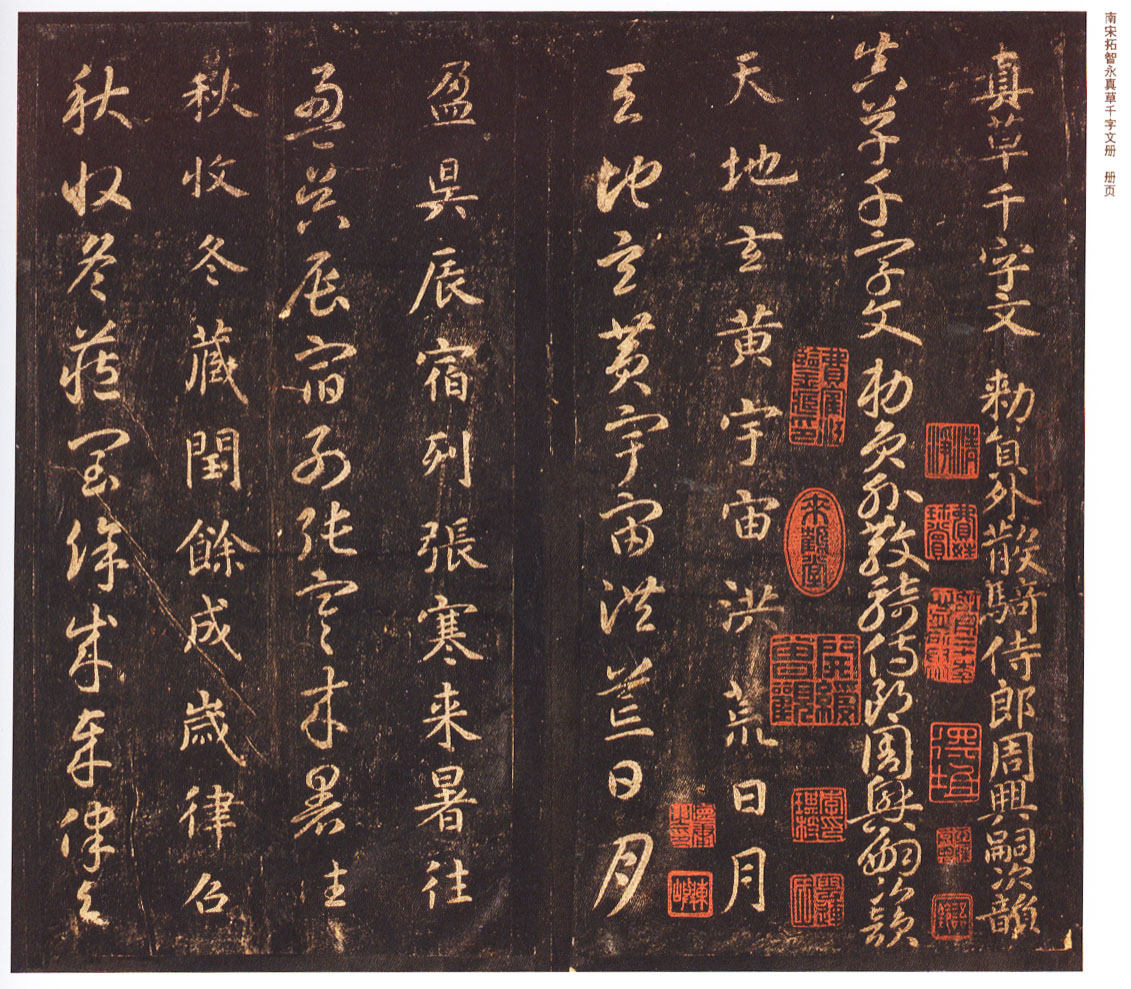 南宋拓智永真草千字文册 册页
真草千字文 勑員外散騎侍郎周興嗣次韻
真草千字文 勑員外散騎侍郎周興嗣次韻
天地玄黄宇宙洪荒日月
天地玄黄宇宙洪荒日月
盈昃辰宿列張寒来暑往
盈昃辰宿列張寒来暑往
秋收冬藏閏餘成歲律召
秋收冬藏閏餘成歲律召